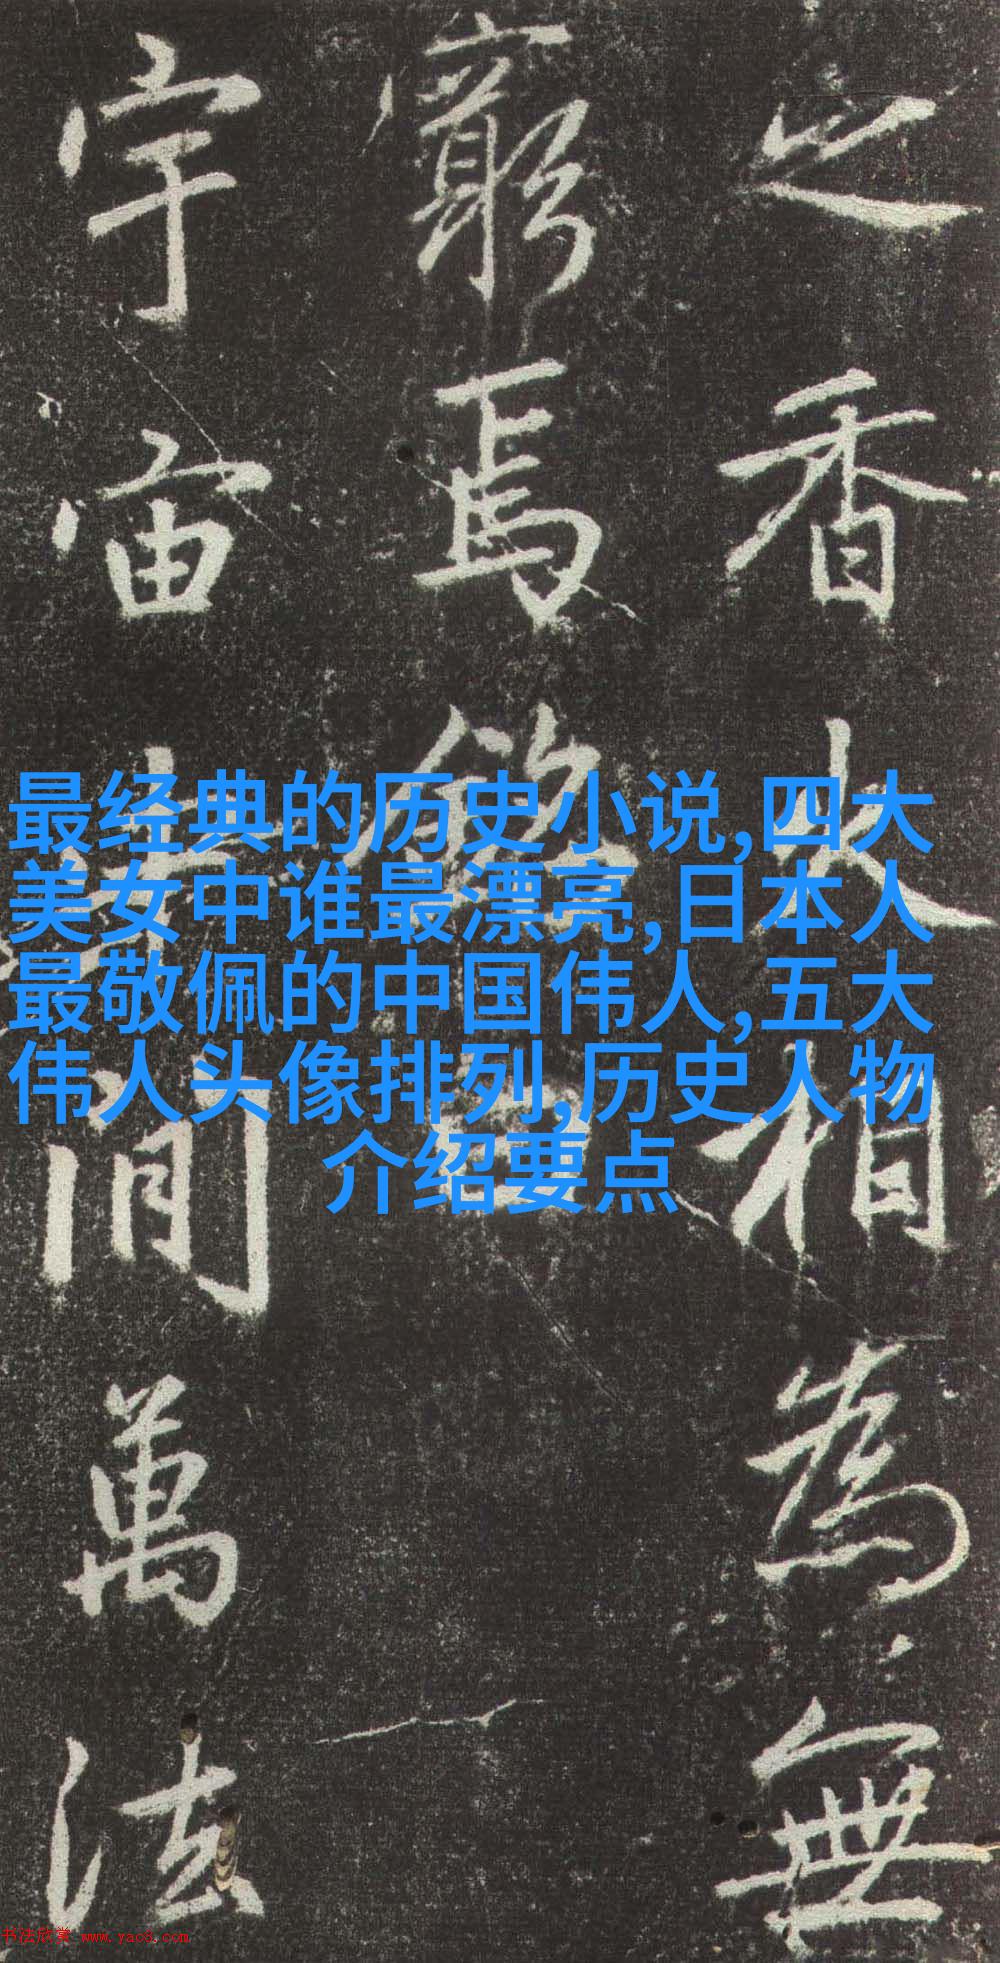 之香火相為無
窮焉銘曰
宇宙間萬法
最经典的历史小说,四大
美女中谁最漂亮,日本人
最敬佩的中国伟人,五大
伟人头像排列,历史人物
介绍要点
书法欣赏 www.yac8.com